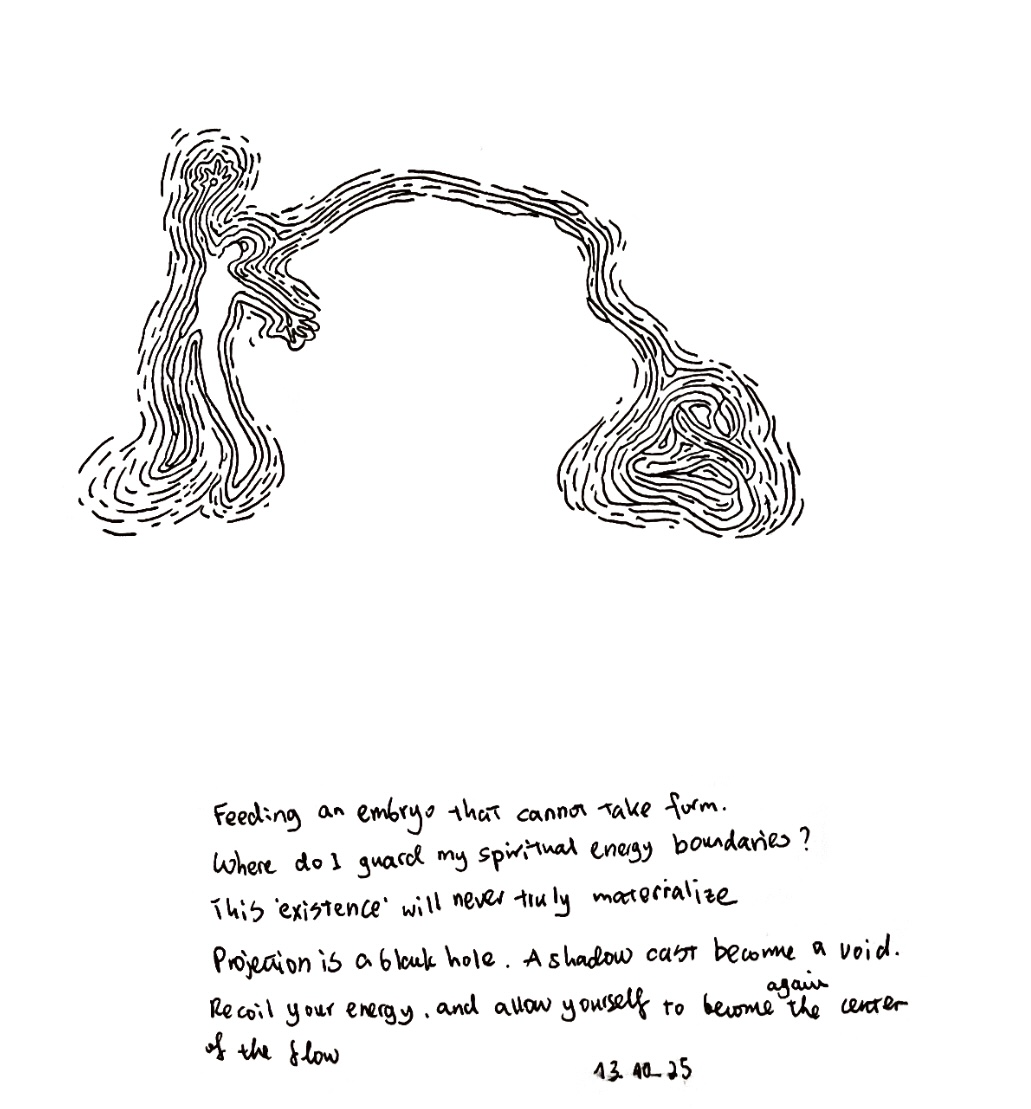 Feeding an embryo that cannot take form.
Where do I guard my spiritual energy boundaries?
This 'existence' will never truly materialize
Projection is a black hole. A shadow cast become a void.
again
Recoil your energy. and allow yourself to become the center
of the flow
13.10.25